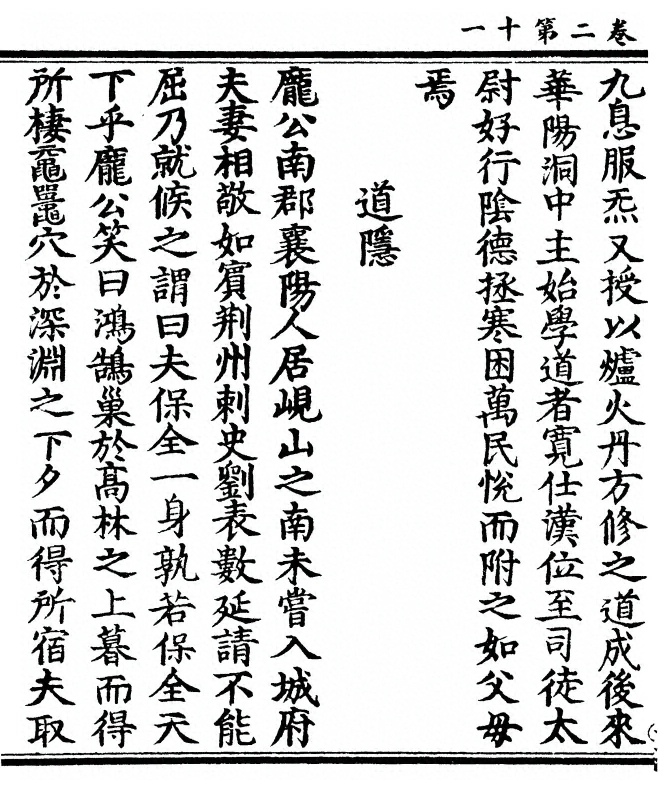 卷二第十一
九息服炁又授以爐火丹方修之道成後來
華陽洞中主始學道者寬仕漢位至司徒太
尉好行陰德拯寒困萬民悅而附之如父母
焉
道隱
龐公南郡襄陽人居峴山之南未嘗入城府
夫妻相敬如賓荆州刺史劉表數延請不能
屈乃就候之謂曰夫保全一身孰若保全天
下乎龐公笑曰鴻鵠巢於髙林之上暮而得
所棲黿鼉穴於深淵之下夕而得所宿夫取